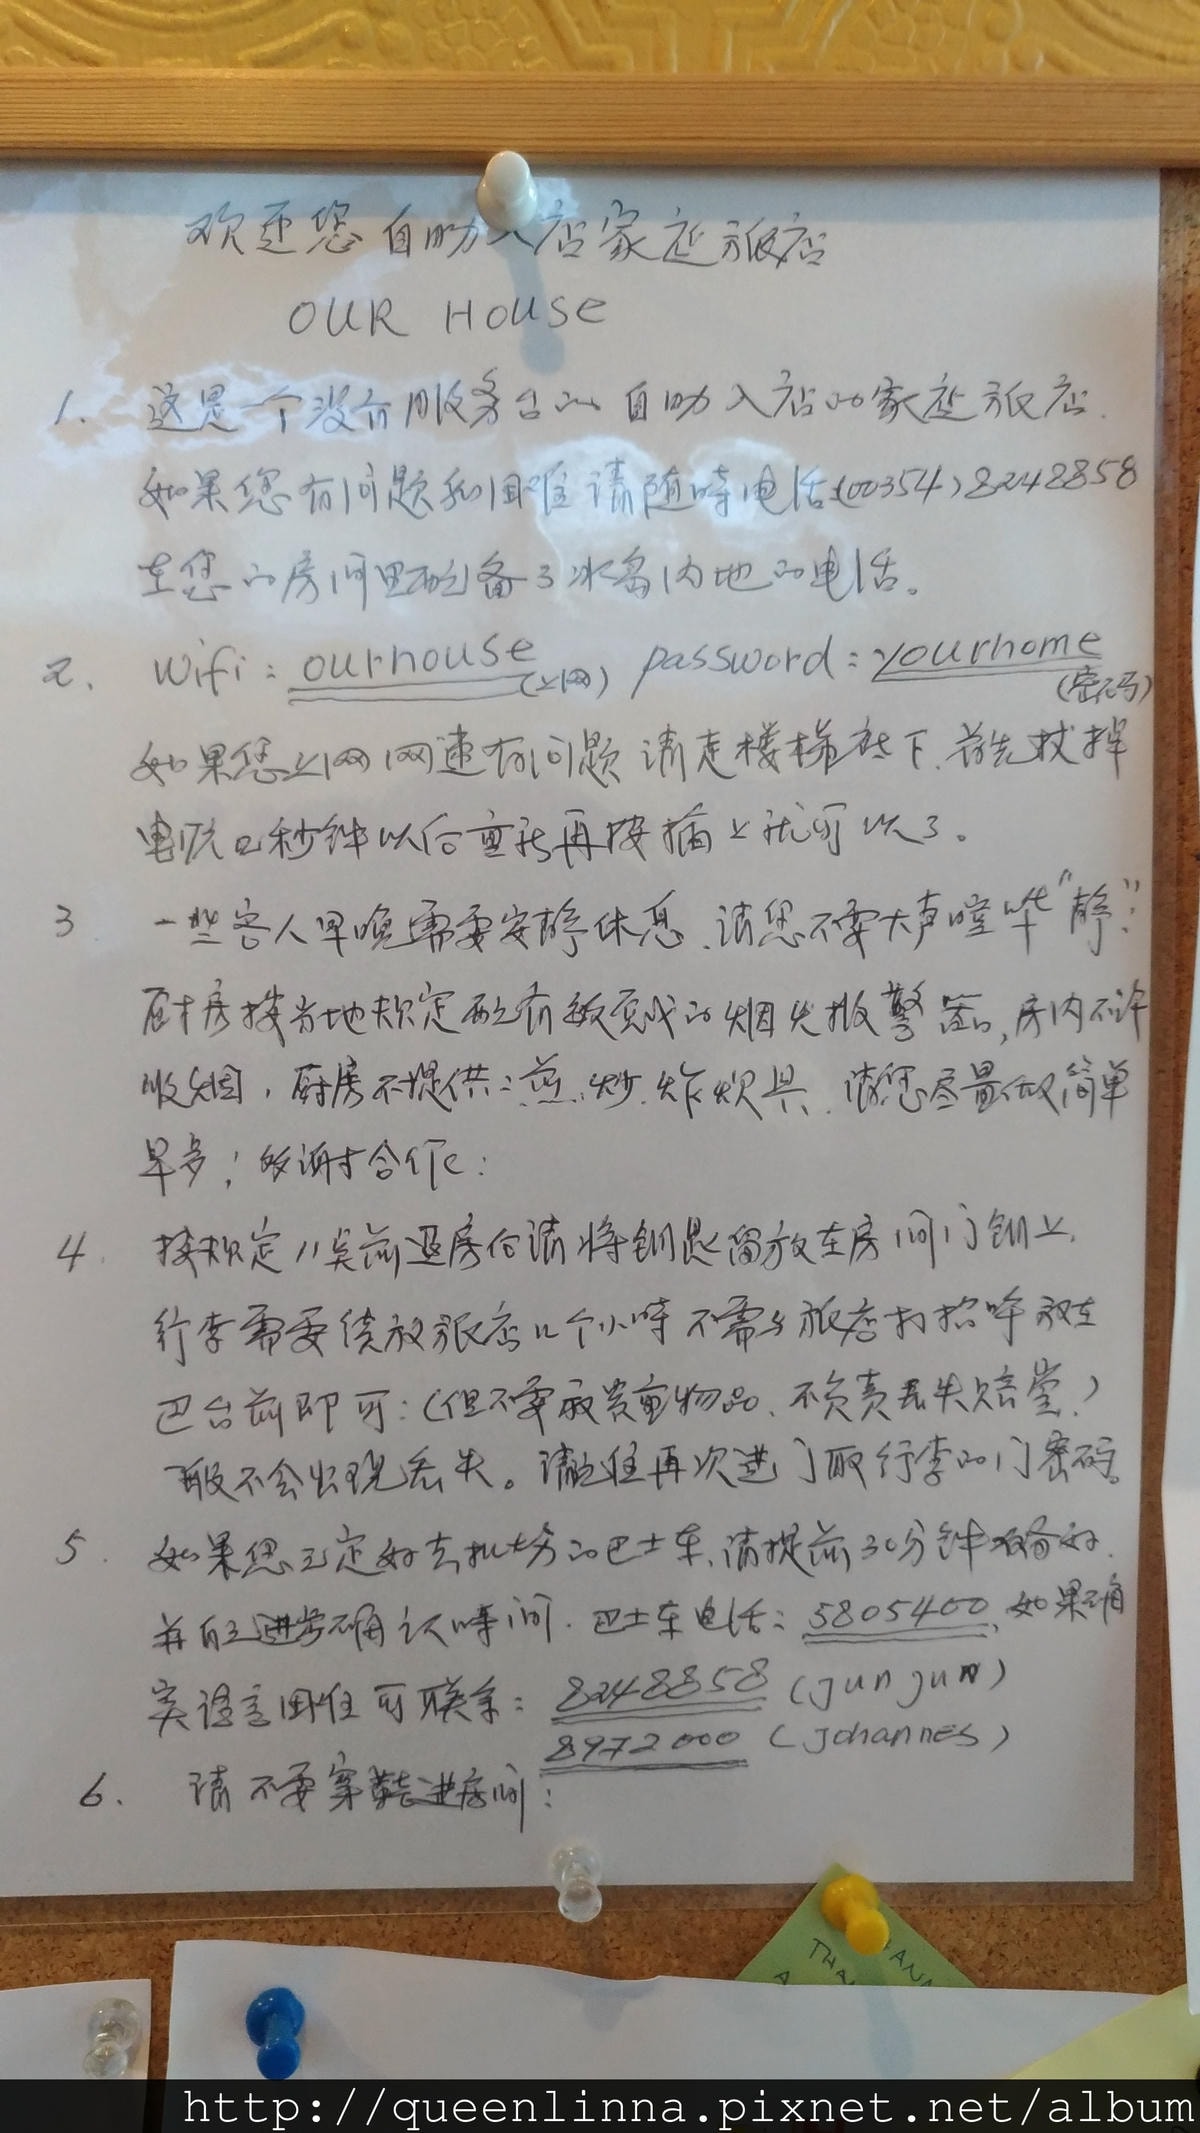 欢迎您自助入店家庭旅店
OUR HOUSE
1. 这是一个没有服务台的自助入店的家庭旅店.
如果您有问题和困难请随时电话(00354)8248858
在您的房间里配备了冰岛内地的电话。
2. Wifi: ourhouse (上网) password: yourhome (密码)
如果您上网网速有问题请走楼梯底下.首先拔掉
电源几秒钟以后重新再接插上就可以了。
3 一些客人早晚需要安静休息.请您不要大声喧哗"静":
厨房按当地规定配有敏感的烟火报警器,房内不许
吸烟,厨房不提供:煎.炒.炸炊具.请您尽量做简单
早歺;多谢合作:
4. 按规定11点前退房后请将钥匙留放在房间门锁上.
行李需要续放旅店几个小时不需与旅店打招呼放在
巴台前即可:(但不要放贵重物品.不负责丢失赔赏.)
一般不会出现丢失。请记住再次进门取行李的门密码。
5. 如果您已定好去机场的巴士车.请提前30分钟准备好.
并自己进步确认时间.巴士车电话:5805400.如果确
实语言困难可联系:8248858 (junjun)
8972000 (Johannes)
6. 请不要穿鞋进房间:
THAN
http://queenlinna.pixnet.net/album